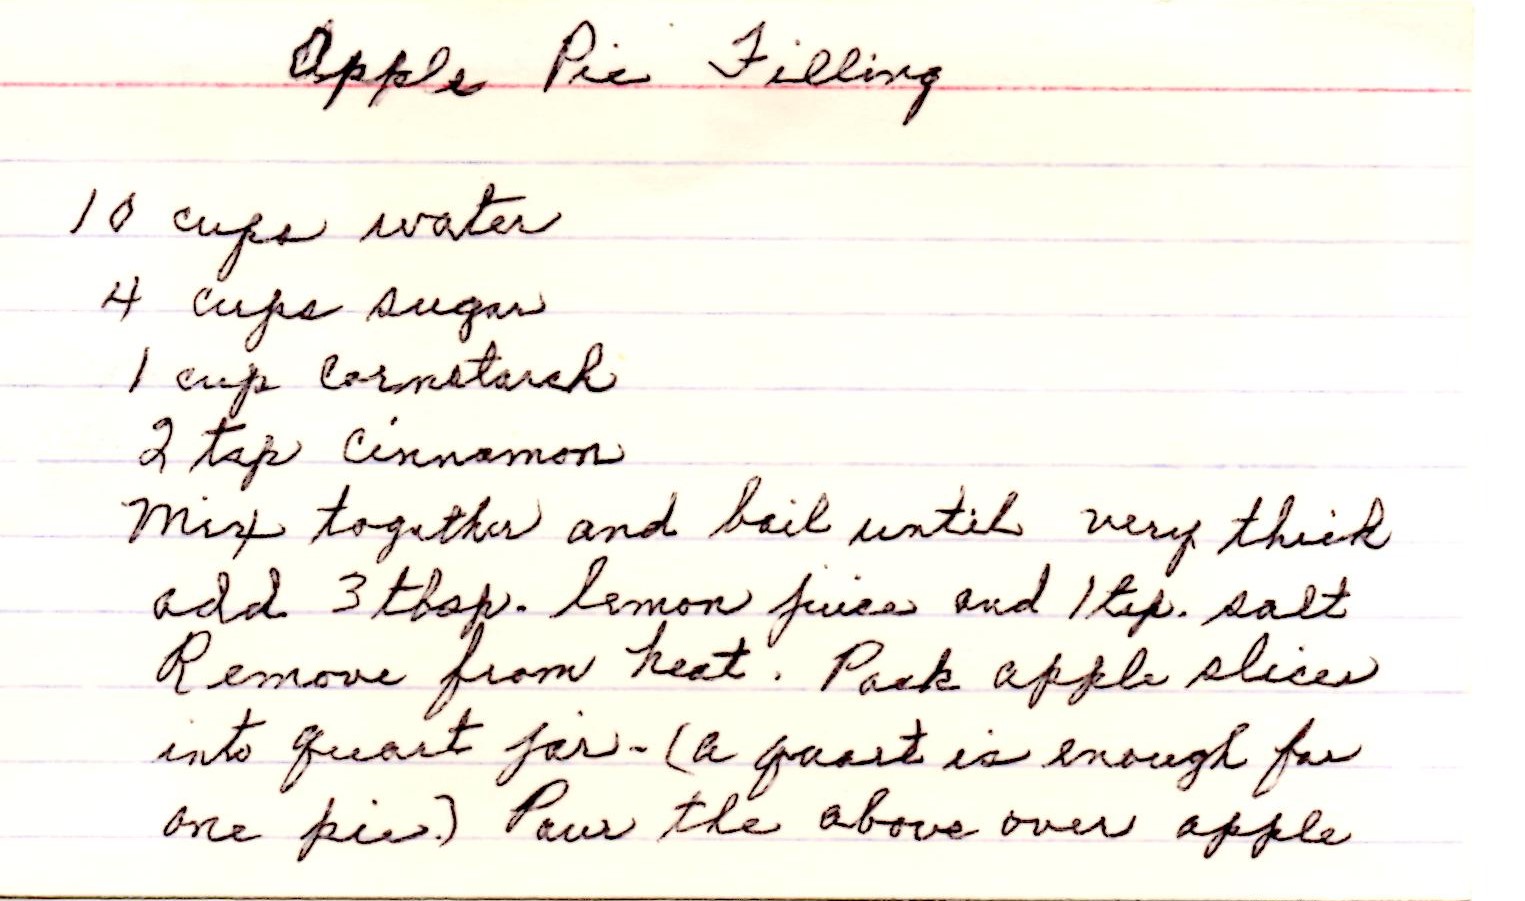 Apple Pie Filling
10 cups water
4 cups sugar
1 cup cornstarch
2 tsp cinnamon
Mix together and boil until very thick
add 3 tbsp. lemon juice and 1 tsp. salt
Remove from heat. Pack apple slices
into quart jar - (a quart is enough for
one pie.) Pour the above over apple